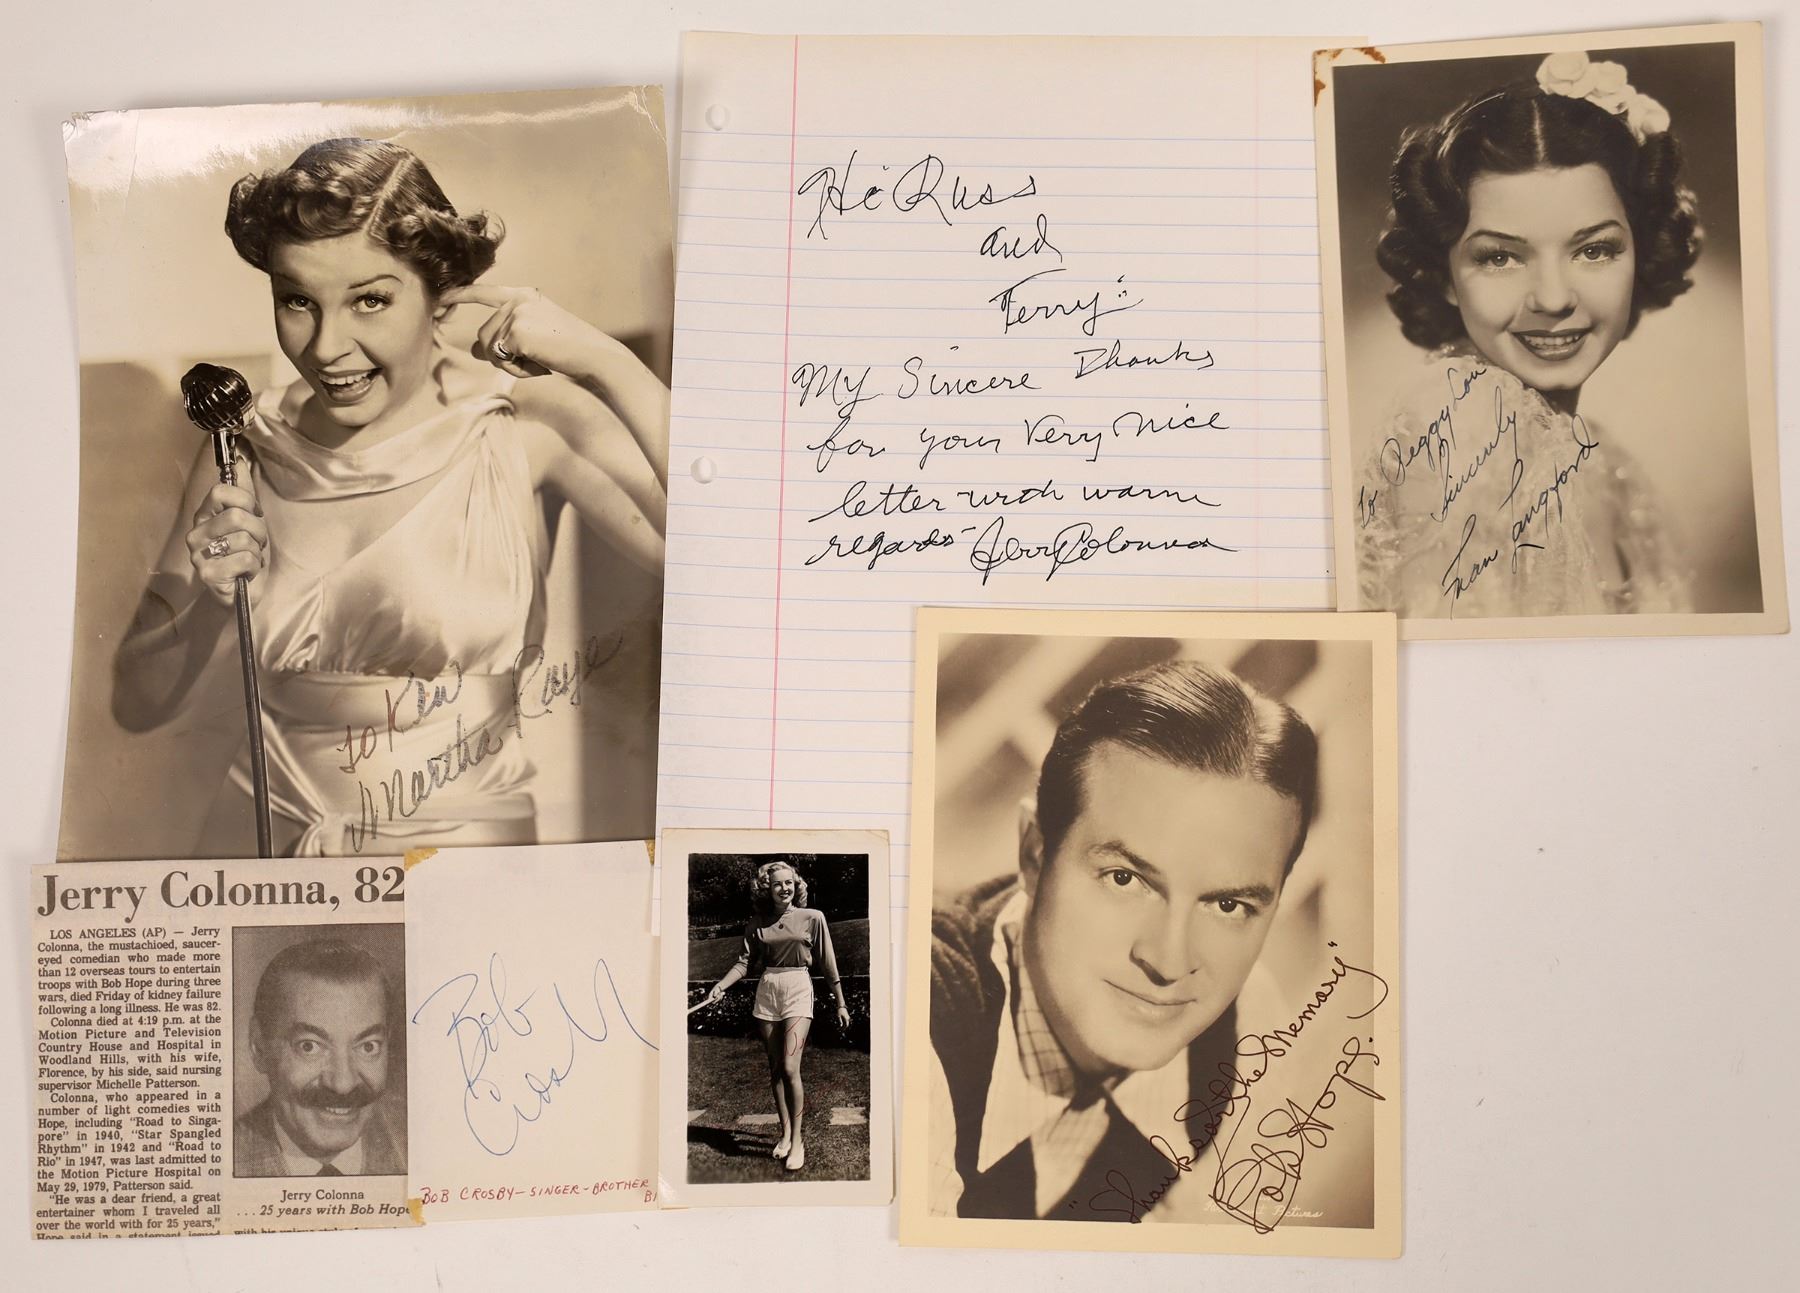 To Ken
Martha Raye
Hi Russ
and
Terry"
My Sincere Thanks
for your Very Nice
letter with warm
regards - Jerry Colonna
To Peggy Lou
Sincerely
Fran Langford
Jerry Colonna, 82
LOS ANGELES (AP) — Jerry
Colonna, the mustachioed, saucer-
eyed comedian who made more
than 12 overseas tours to entertain
troops with Bob Hope during three
wars, died Friday of kidney failure
following a long illness. He was 82.
Colonna died at 4:19 p.m. at the
Motion Picture and Television
Country House and Hospital in
Woodland Hills, with his wife,
Florence, by his side, said nursing
supervisor Michelle Patterson.
Colonna, who appeared in a
number of light comedies with
Hope, including "Road to Singa-
pore" in 1940, "Star Spangled
Rhythm" in 1942 and "Road to
Rio" in 1947, was last admitted to
the Motion Picture Hospital on
May 29, 1979, Patterson said.
"He was a dear friend, a great
entertainer whom I traveled all
over the world with for 25 years,"
Hope said in a statement issued
Jerry Colonna
. . . 25 years with Bob Hope
Bob
Crosby
BOB CROSBY - SINGER - BROTHER
BI
"Thanks for the Memory"
Bob Hope.
Pictures